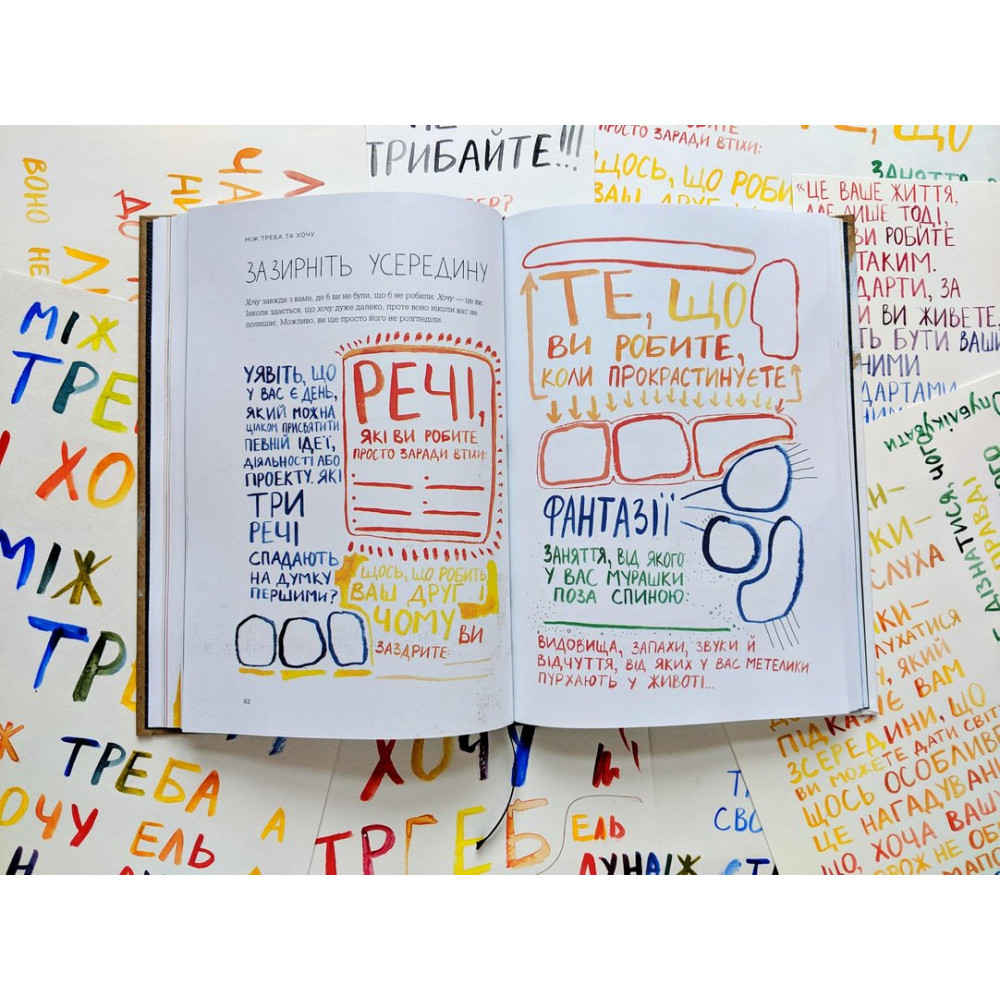 МІЖ ТРЕБА ТА ХОЧУ
ЗАЗИРНІТЬ УСЕРЕДИНУ
Хочу завжди з вами, де б ви не були, що б не робили. Хочу — це ви.
Інколи здається, що хочу дуже далеко, проте воно ніколи вас не
полишає. Можливо, ви ще просто його не розгледіли.
УЯВІТЬ, ЩО
У ВАС Є ДЕНЬ,
ЯКИЙ МОЖНА
ЦІЛКОМ ПРИСВЯТИТИ
ПЕВНІЙ ІДЕЇ,
ДІЯЛЬНОСТІ АБО
ПРОЕКТУ. ЯКІ
ТРИ
РЕЧІ
СПАДАЮТЬ
НА ДУМКУ
ПЕРШИМИ?
РЕЧІ,
ЯКІ ВИ РОБИТЕ
ПРОСТО ЗАРАДИ ВТІХИ:
ЩОСЬ, ЩО РОБИТЬ
ВАШ ДРУГ І
ЧОМУ ВИ
ЗАЗДРИТЕ:
82
ТЕ, ЩО
ВИ РОБИТЕ,
КОЛИ ПРОКРАСТИНУЄТЕ
ФАНТАЗІЇ
ЗАНЯТТЯ, ВІД ЯКОГО
У ВАС МУРАШКИ
ПОЗА СПИНОЮ:
ВИДОВИЩА, ЗАПАХИ, ЗВУКИ Й
ВІДЧУТТЯ, ВІД ЯКИХ У ВАС МЕТЕЛИКИ
ПУРХАЮТЬ У ЖИВОТІ...
ВОНО НЕ
МІЖ
ТРЕ
ХО
МІЖ
ТР
ТРЕБА А
ХОЧУ ЕЛЬ
ТРИБАЙТЕ!!!
ПРОСТО ЗАРАДИ ВТІХИ:
ЩОСЬ, ЩО РОБИ
ВАШ ДРУГ
ТЕ, ЩО
ЗАНЯТТЯ
"ЦЕ ВАШЕ ЖИТТЯ,
АЛЕ ЛИШЕ ТОДІ,
ВИ РОБИТЕ
ТАКИМ.
ДАРТИ, ЗА
И ВИ ЖИВЕТЕ,
ТЬ БУТИ ВАШИ
НИМИ
ДАРТАМИ
ОПУБЛІКУВАТИ
ДІЗНАТИСЯ, ЧОГО
ПРАВДІ
СЛУХА
СЛУХАТИСЯ
У, ЯКИЙ
ПІДКАЗУЄ ВАМ
ЗСЕРЕДИНИ, ЩО
ВИ МОЖЕТЕ ДАТИ СВІТ
ЩОСЬ ОСОБЛИВЕ
ЦЕ НАГАДУВАН
ЩО, ХОЧА ВАШУ
ХОЧУ
ТРЕБ
ЕЛЬ
ЛУНАІЖ СТА
СВО